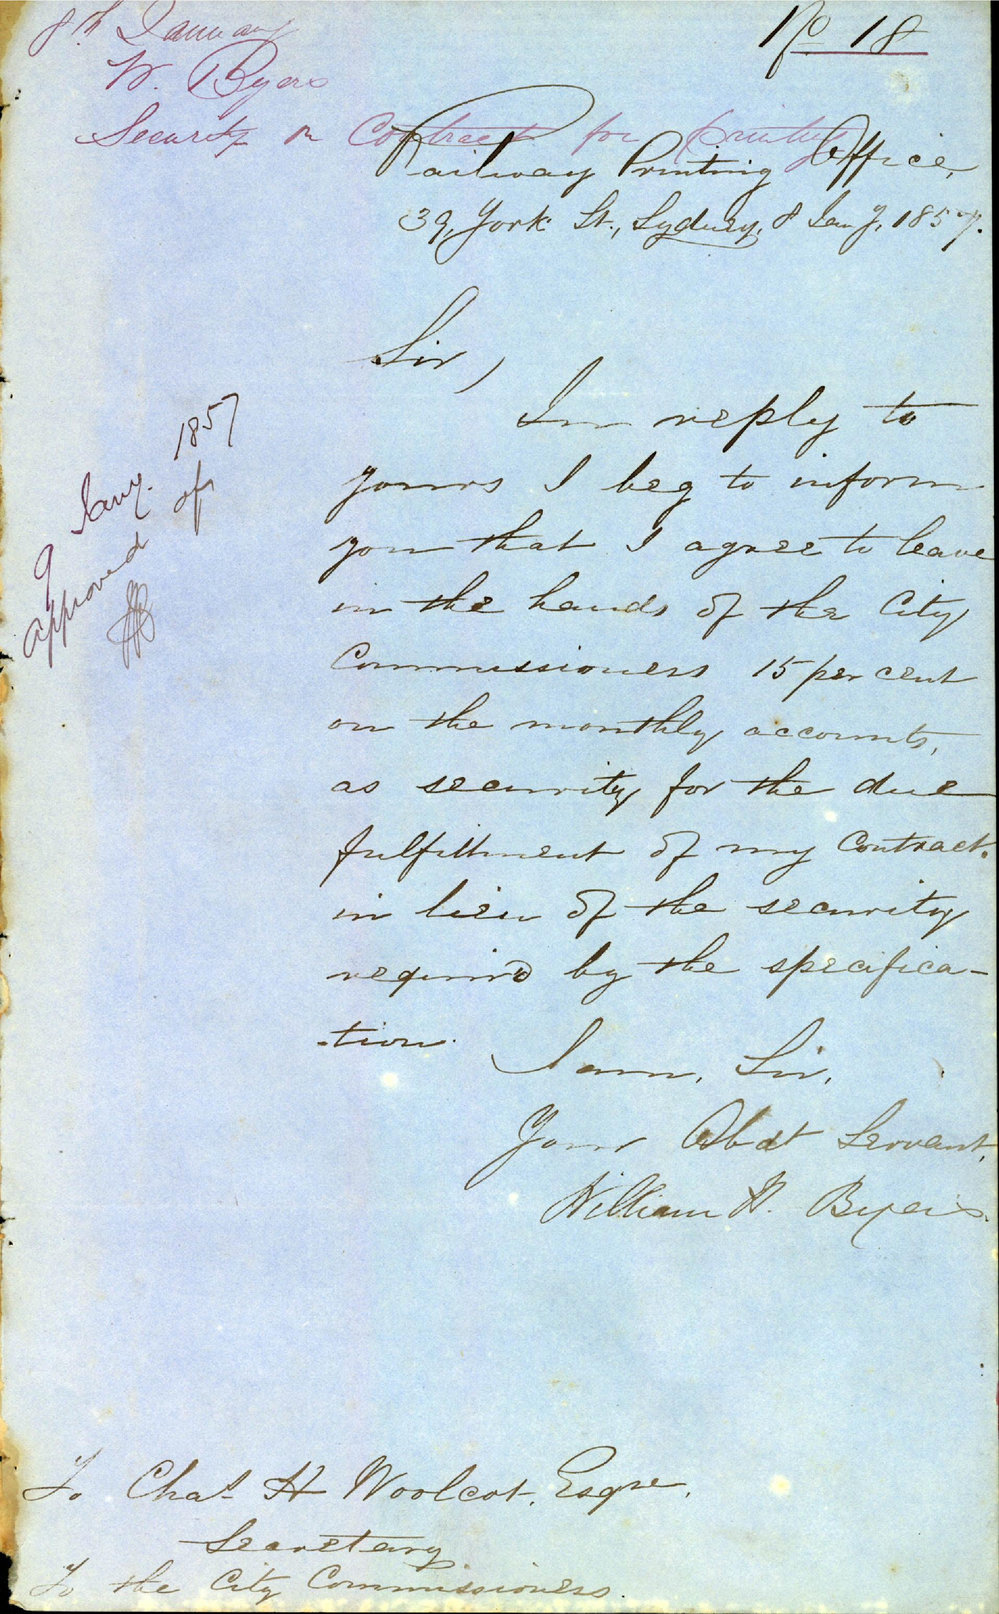 8th January
W. Byers
Security on Contract for Printing
No 18
Railway Printing Office,
39, York St., Sydney, 8 Jany, 1857.
Sir,
In reply to
yours I beg to inform
you that I agree to leave
in the hands of the City
Commissioners 15 per cent
on the monthly accounts,
as security for the due
fulfillment of my Contract.
in lieu of the security
requir'd by the specifica-
-tion.
I am, Sir,
Your Obdt Servant,
William N. Byers.
9 Jany. 1857
approved of
To Chas H Woolcot, Esqre,
Secretary
To the City Commissioners.